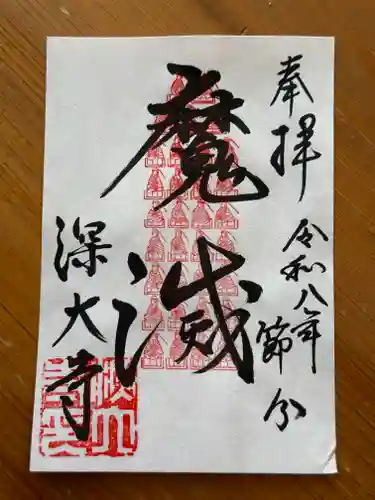 奉拝
令和八年
節分
魔滅
深大寺